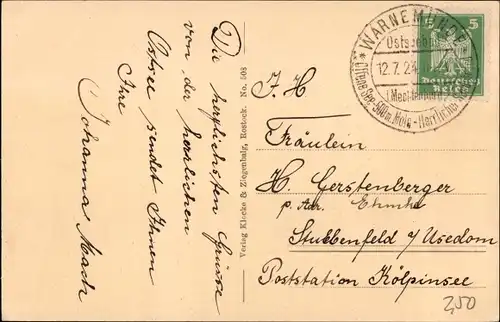 Die herzlichsten Grüsse
von der herrlichen
Ostsee sendet Ihnen
Ihre
Johanna Mach
Verlag Klecke & Ziegenbalg, Rostock. No. 508
WARNEMÜNDE
Ostseebad
12.7.24
(Mecklenburg)
Offene See-500m Mole-Herrlicher
5
Deutsches
Reich
F. H
Fräulein
H. Gerstenberger
p. Adr. Ehmke
Stubbenfeld a/Usedom
Poststation Kölpinsee
2,50